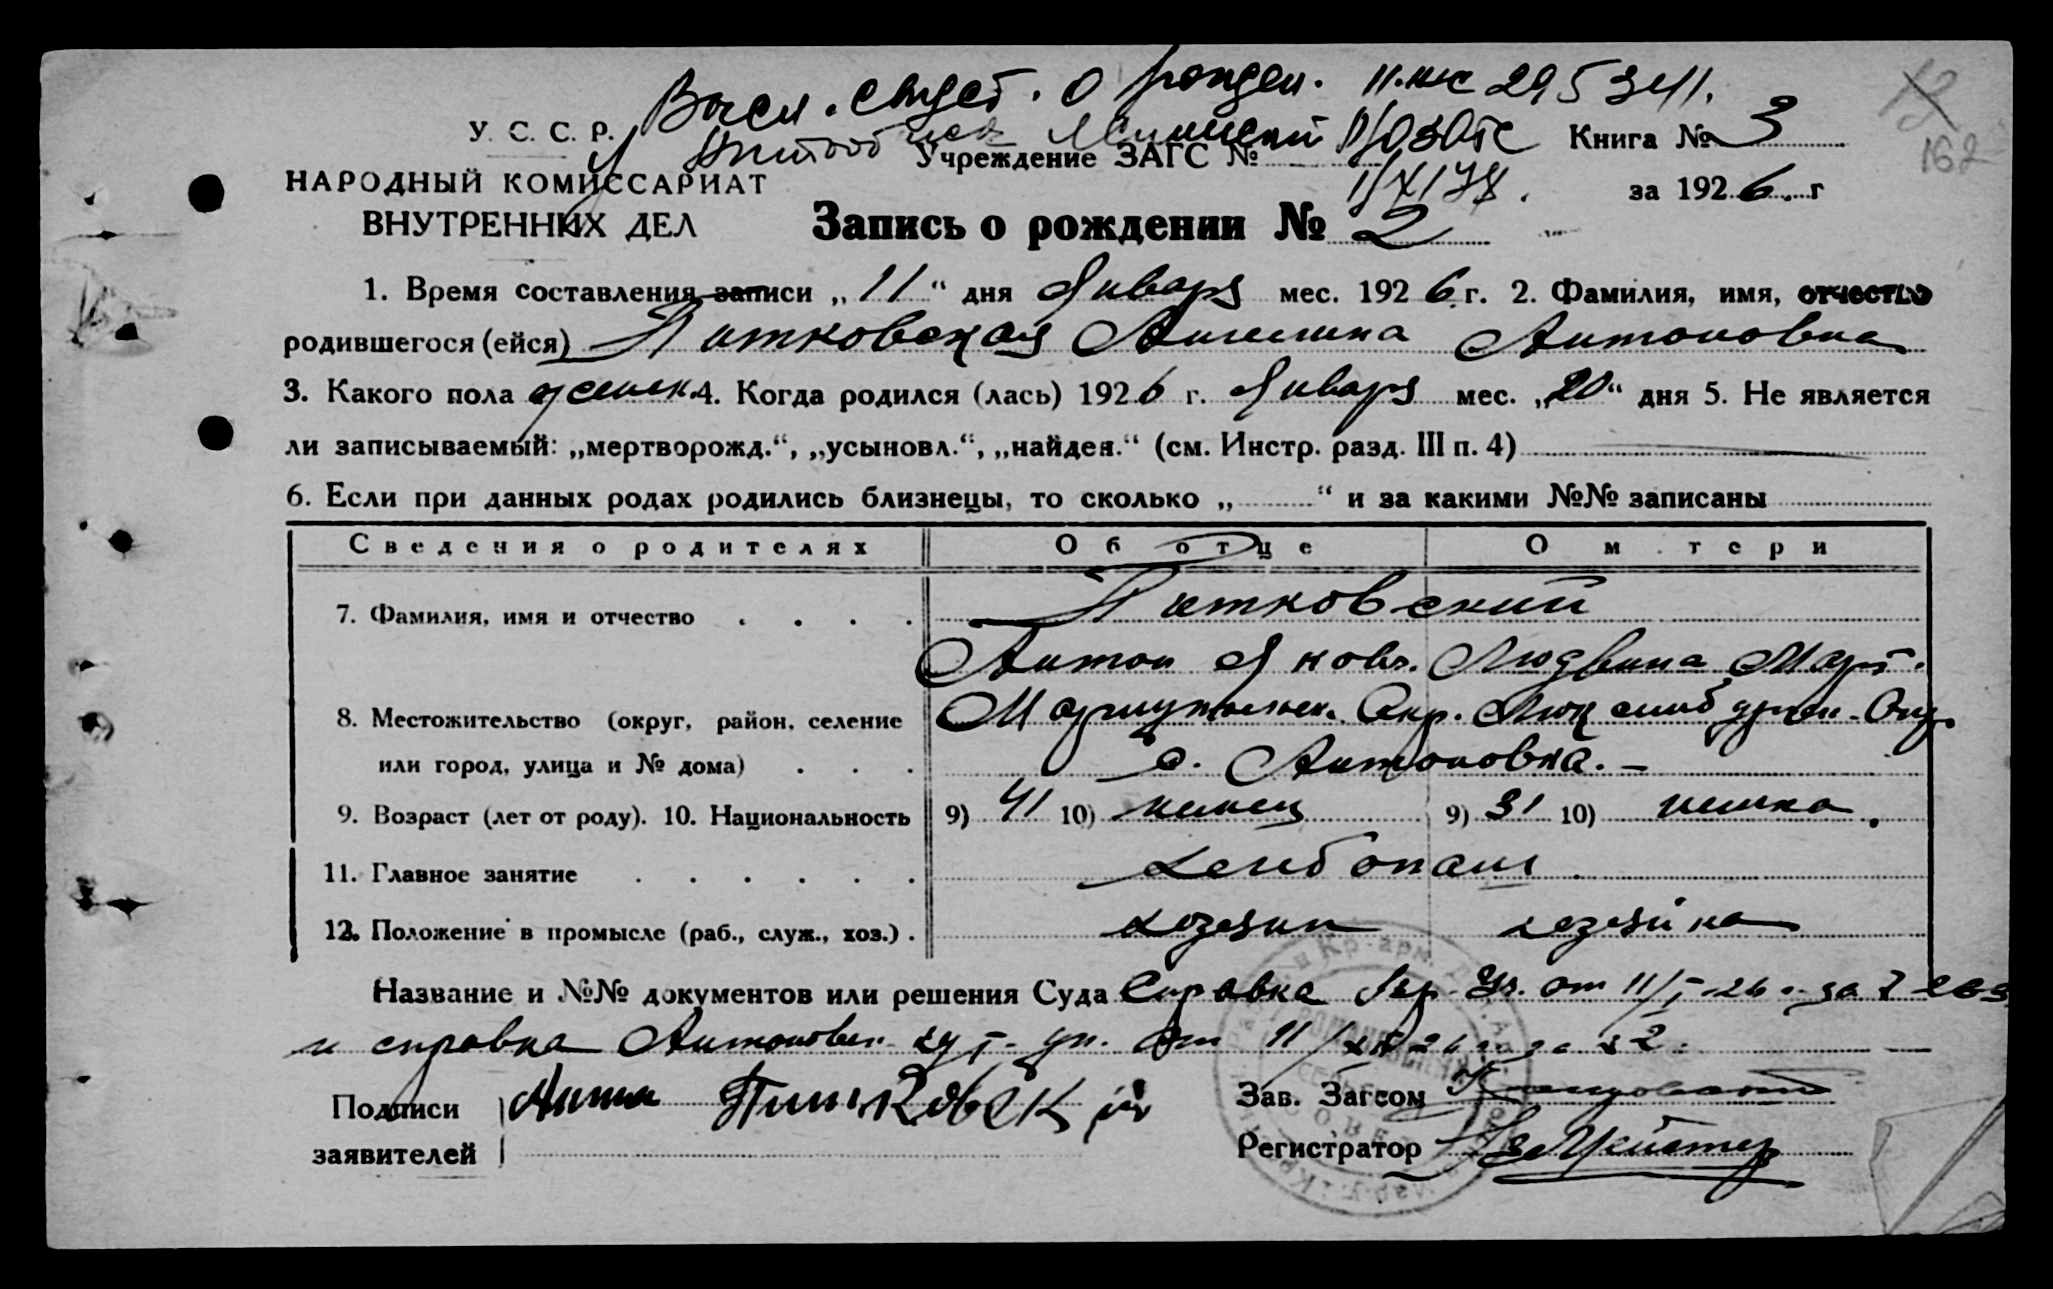 Высл. свидет. о рожден. 11. 295341.
У. С. С. Р.
Учреждение ЗАГС № Книга № 3
162
НАРОДНЫЙ КОМИССАРИАТ
за 1926 г
ВНУТРЕННИХ ДЕЛ
Запись о рождении № 2
1. Время составления записи „11“ дня Январь мес. 1926 г. 2. Фамилия, имя, отчество
родившегося (ейся) Питковская Антоновна
3. Какого пола женск. 4. Когда родился (лась) 1926 г. Январь мес. „20“ дня 5. Не является
ли записываемый: „мертворожд.“, „усыновл.“, „найден.“ (см. Инстр. разд. III п. 4)
6. Если при данных родах родились близнецы, то сколько „ “ и за какими №№ записаны
Сведения о родителях Об отце О м тери
7. Фамилия, имя и отчество Питковский
Антон Яковл. Людвина Март.
8. Местожительство (округ, район, селение Мариупольск. Окр. Люксембург.
или город, улица и № дома) с. Антоновка.
9. Возраст (лет от роду). 10. Национальность 9) 41 10) немец 9) 31 10) немка.
11. Главное занятие хлебопаш
12. Положение в промысле (раб., служ., хоз.) хозяин хозяйка
Название и №№ документов или решения Суда Справка от 11/I-26 г. за
и справка Антоновск. от 11/ 26 г. за № 2.
Подписи Питковский Зав. Загсом
заявителей Регистратор